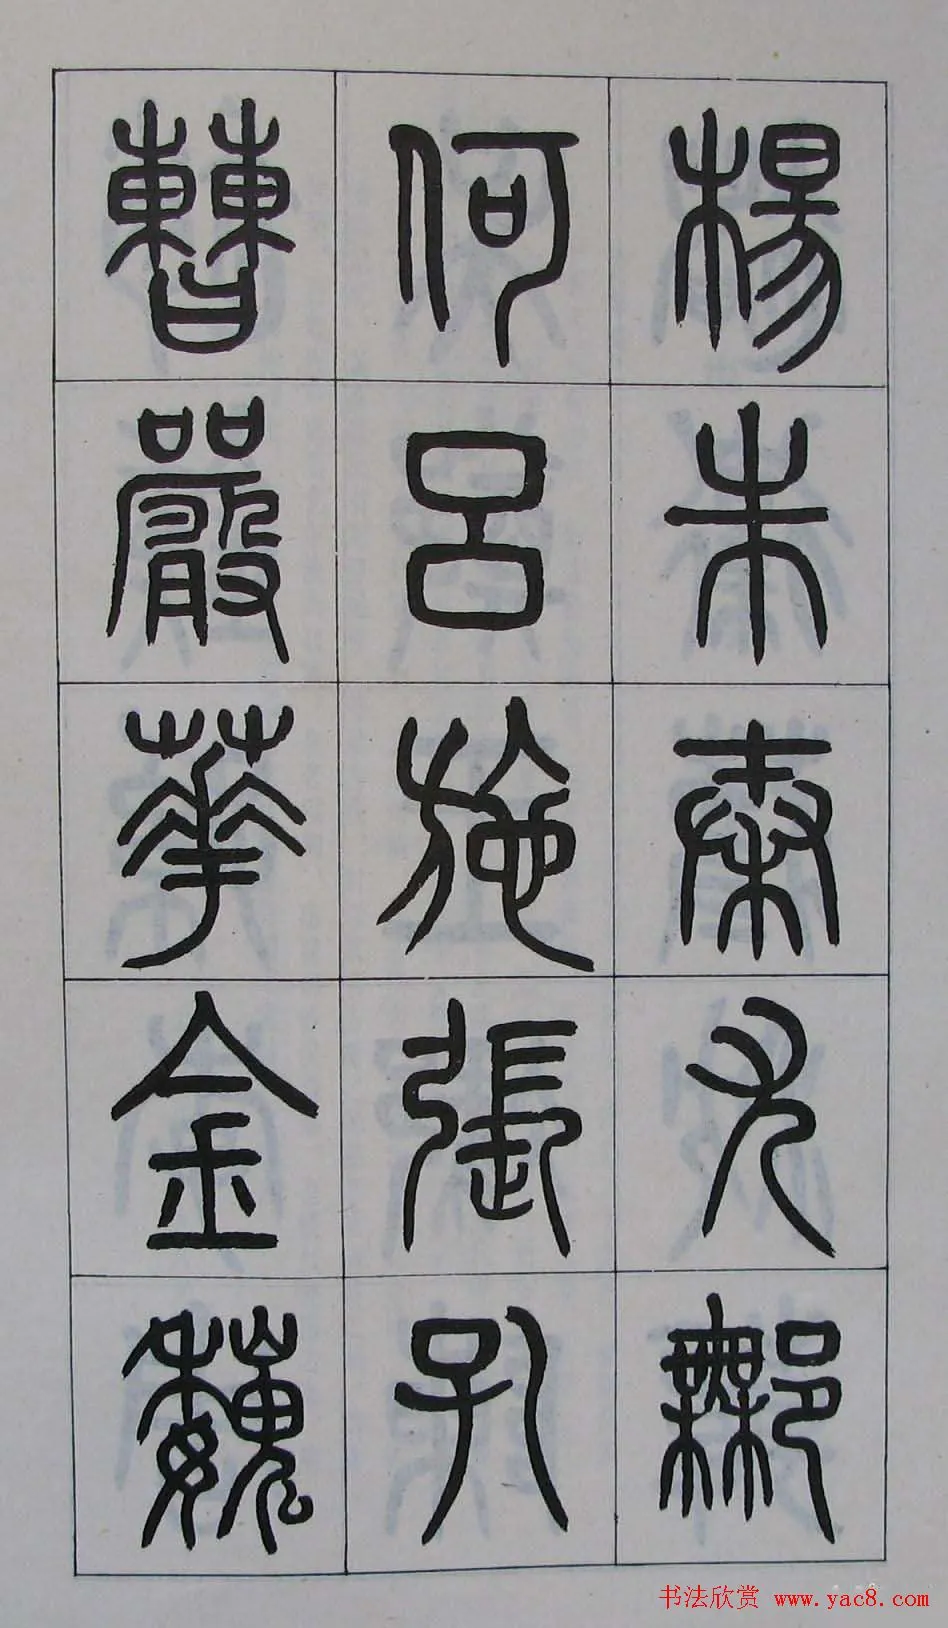 楊朱秦尤鄦
何呂施張孔
曹嚴華金魏
书法欣赏 www.yac8.com